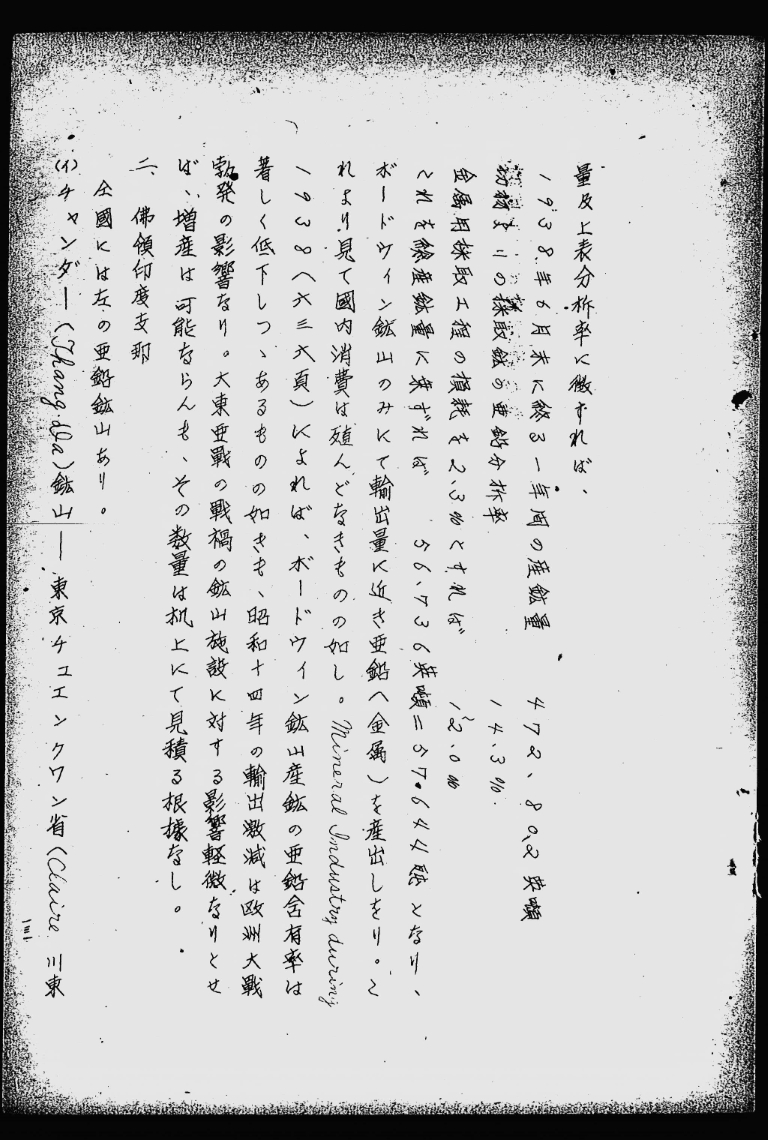 量及上表分析率に徴すれば、
1938年6月末に終る一年間の産鉱量 472,802英噸
の採取鉱の亜鉛分析率 14.3%
金属用採取工程の損耗を2.3%とすれば 12.0%
これを総産鉱量に乗ずれば 56,736英噸=57.644瓲となり、
ボードウィン鉱山のみにて輸出量に近き亜鉛(金属)を産出しをり。こ
れより見て國内消費は殆んどなきものの如し。Mineral Industry during
1938(六三六頁)によれば、ボードウィン鉱山産鉱の亜鉛含有率は
著しく低下しつゝあるものの如きも、昭和十四年の輸出激減は欧洲大戦
勃発の影響なり。大東亜戦の戦禍の鉱山施設に対する影響軽微なりとせ
ば、増産は可能ならんも、その数量は机上にて見積る根據なし。
二、佛領印度支那
仝國には左の亜鉛鉱山あり。
(イ)チャンダー(Thang Da)鉱山――東京チユエンクワン省(Claire 川東
一三一